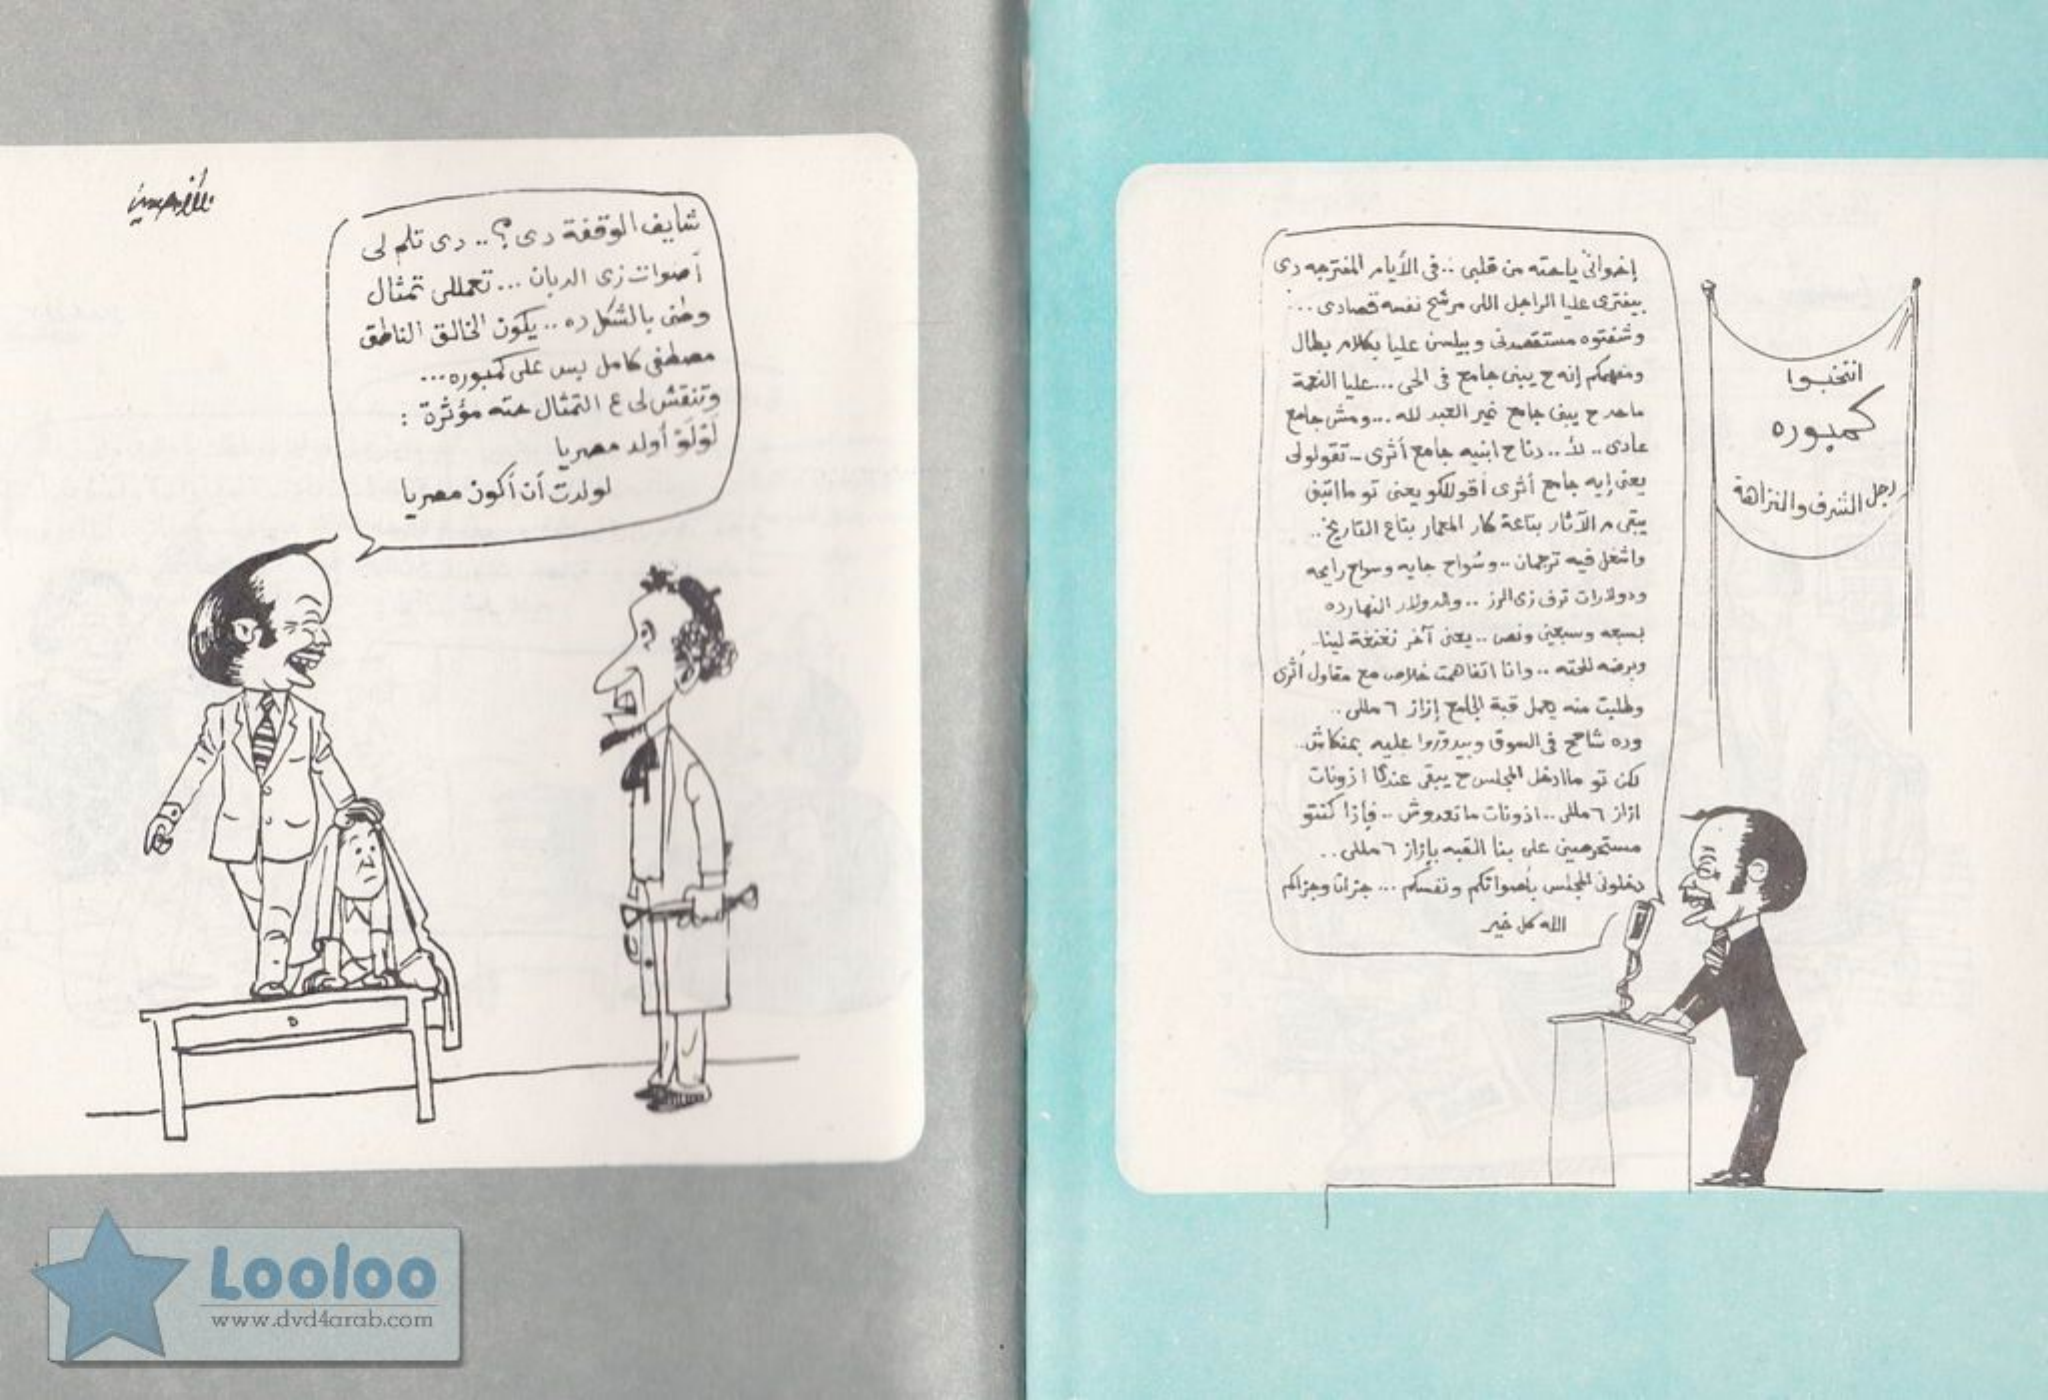 إخوانى ياحته من قلبى .. فى الأيام المفترجه دى
بيفترى عليا الراجل اللى مرشح نفسه قصادى ...
وشفتوه مستقصدنى وبيلسن عليا بكلام بطال
ومفهمكم إنه ح يبنى جامع فى الحى ... عليا النعمة
ماحد ح يبنى جامع غير العبد لله ... ومش جامع
عادى .. لأ .. دناح ابنيه جامع أثرى - تقولولى
يعنى إيه جامع أثرى أقوللكو يعنى تو مااتبنى
يبقى م الآثار بتاعة كار المعمار بتاع التاريخ ..
واشغل فيه ترجمان .. وسُواح جايه وسواح رايحه
ودولارات ترف زى الرز .. والدولار النهارده
بسبعه وسبعين ونص .. يعنى آخر نغنغة لينا ..
وبرضه للحته .. وانا اتفاهمت خلاص مع مقاول أثرى
وطلبت منه يعمل قبة الجامع إزاز ٦ مللى ..
وده شاحح فى السوق وبيدوروا عليه بمنكاش ..
لكن تو ماادخل المجلس ح يبقى عندنا اذونات
ازاز ٦ مللى .. اذونات ماتعدوش .. فإذا كنتو
مستحرصين على بنا القبه بإزاز ٦ مللى ..
دخلونى المجلس بأصواتكم ونفسكم ... جزانا وجزاكم
الله كل خير
انتخبوا
كمبوره
رجل الشرف والنزاهة
شايف الوقفة دى ؟ .. دى تلم لى
أصوات زى الدبان ... تعمللى تمثال
وطنى بالشكل ده .. يكون الخالق الناطق
مصطفى كامل بس على كمبوره ...
وتنقش لى ع التمثال حته مؤثرة :
لَوْلَمْ أولد مصريا
لولدت أن أكون مصريا
Looloo
www.dvd4arab.com